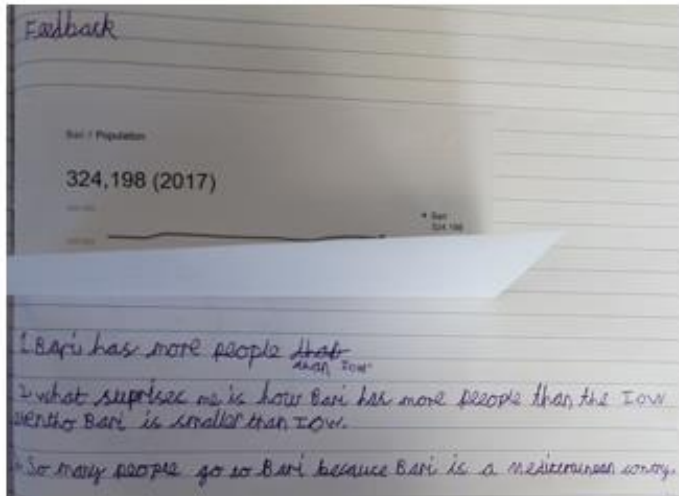 Feedback
Bari / Population
324,198 (2017)
Bari
324,198
1. Bari has more people that
than IOW
2. what suprisec me is how Bari has more people than the IOW
eventho Bari is smaller than IOW.
So many people go to Bari because Bari is a mediterainean